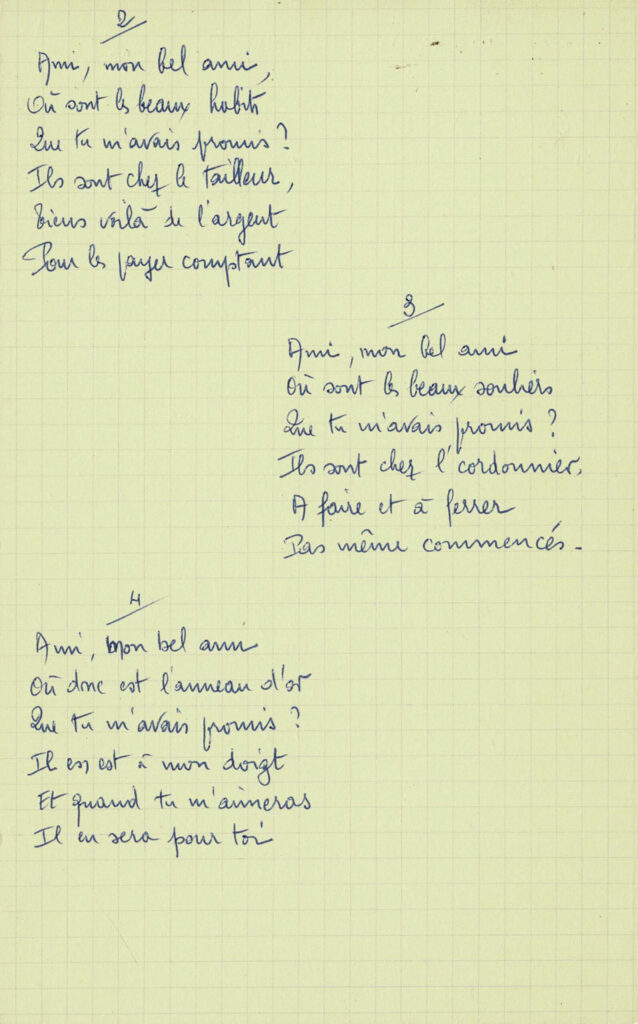 2
Ami, mon bel ami,
Où sont les beaux habits
Que tu m'avais promis ?
Ils sont chez le tailleur,
Tiens voilà de l'argent
Pour les payer comptant
3
Ami, mon bel ami
Où sont les beaux souliers
Que tu m'avais promis ?
Ils sont chez l'cordonnier,
A faire et à ferrer
Pas même commencés -
4
Ami, mon bel ami
Où donc est l'anneau d'or
Que tu m'avais promis ?
Il est à mon doigt
Et quand tu m'aimeras
Il en sera pour toi